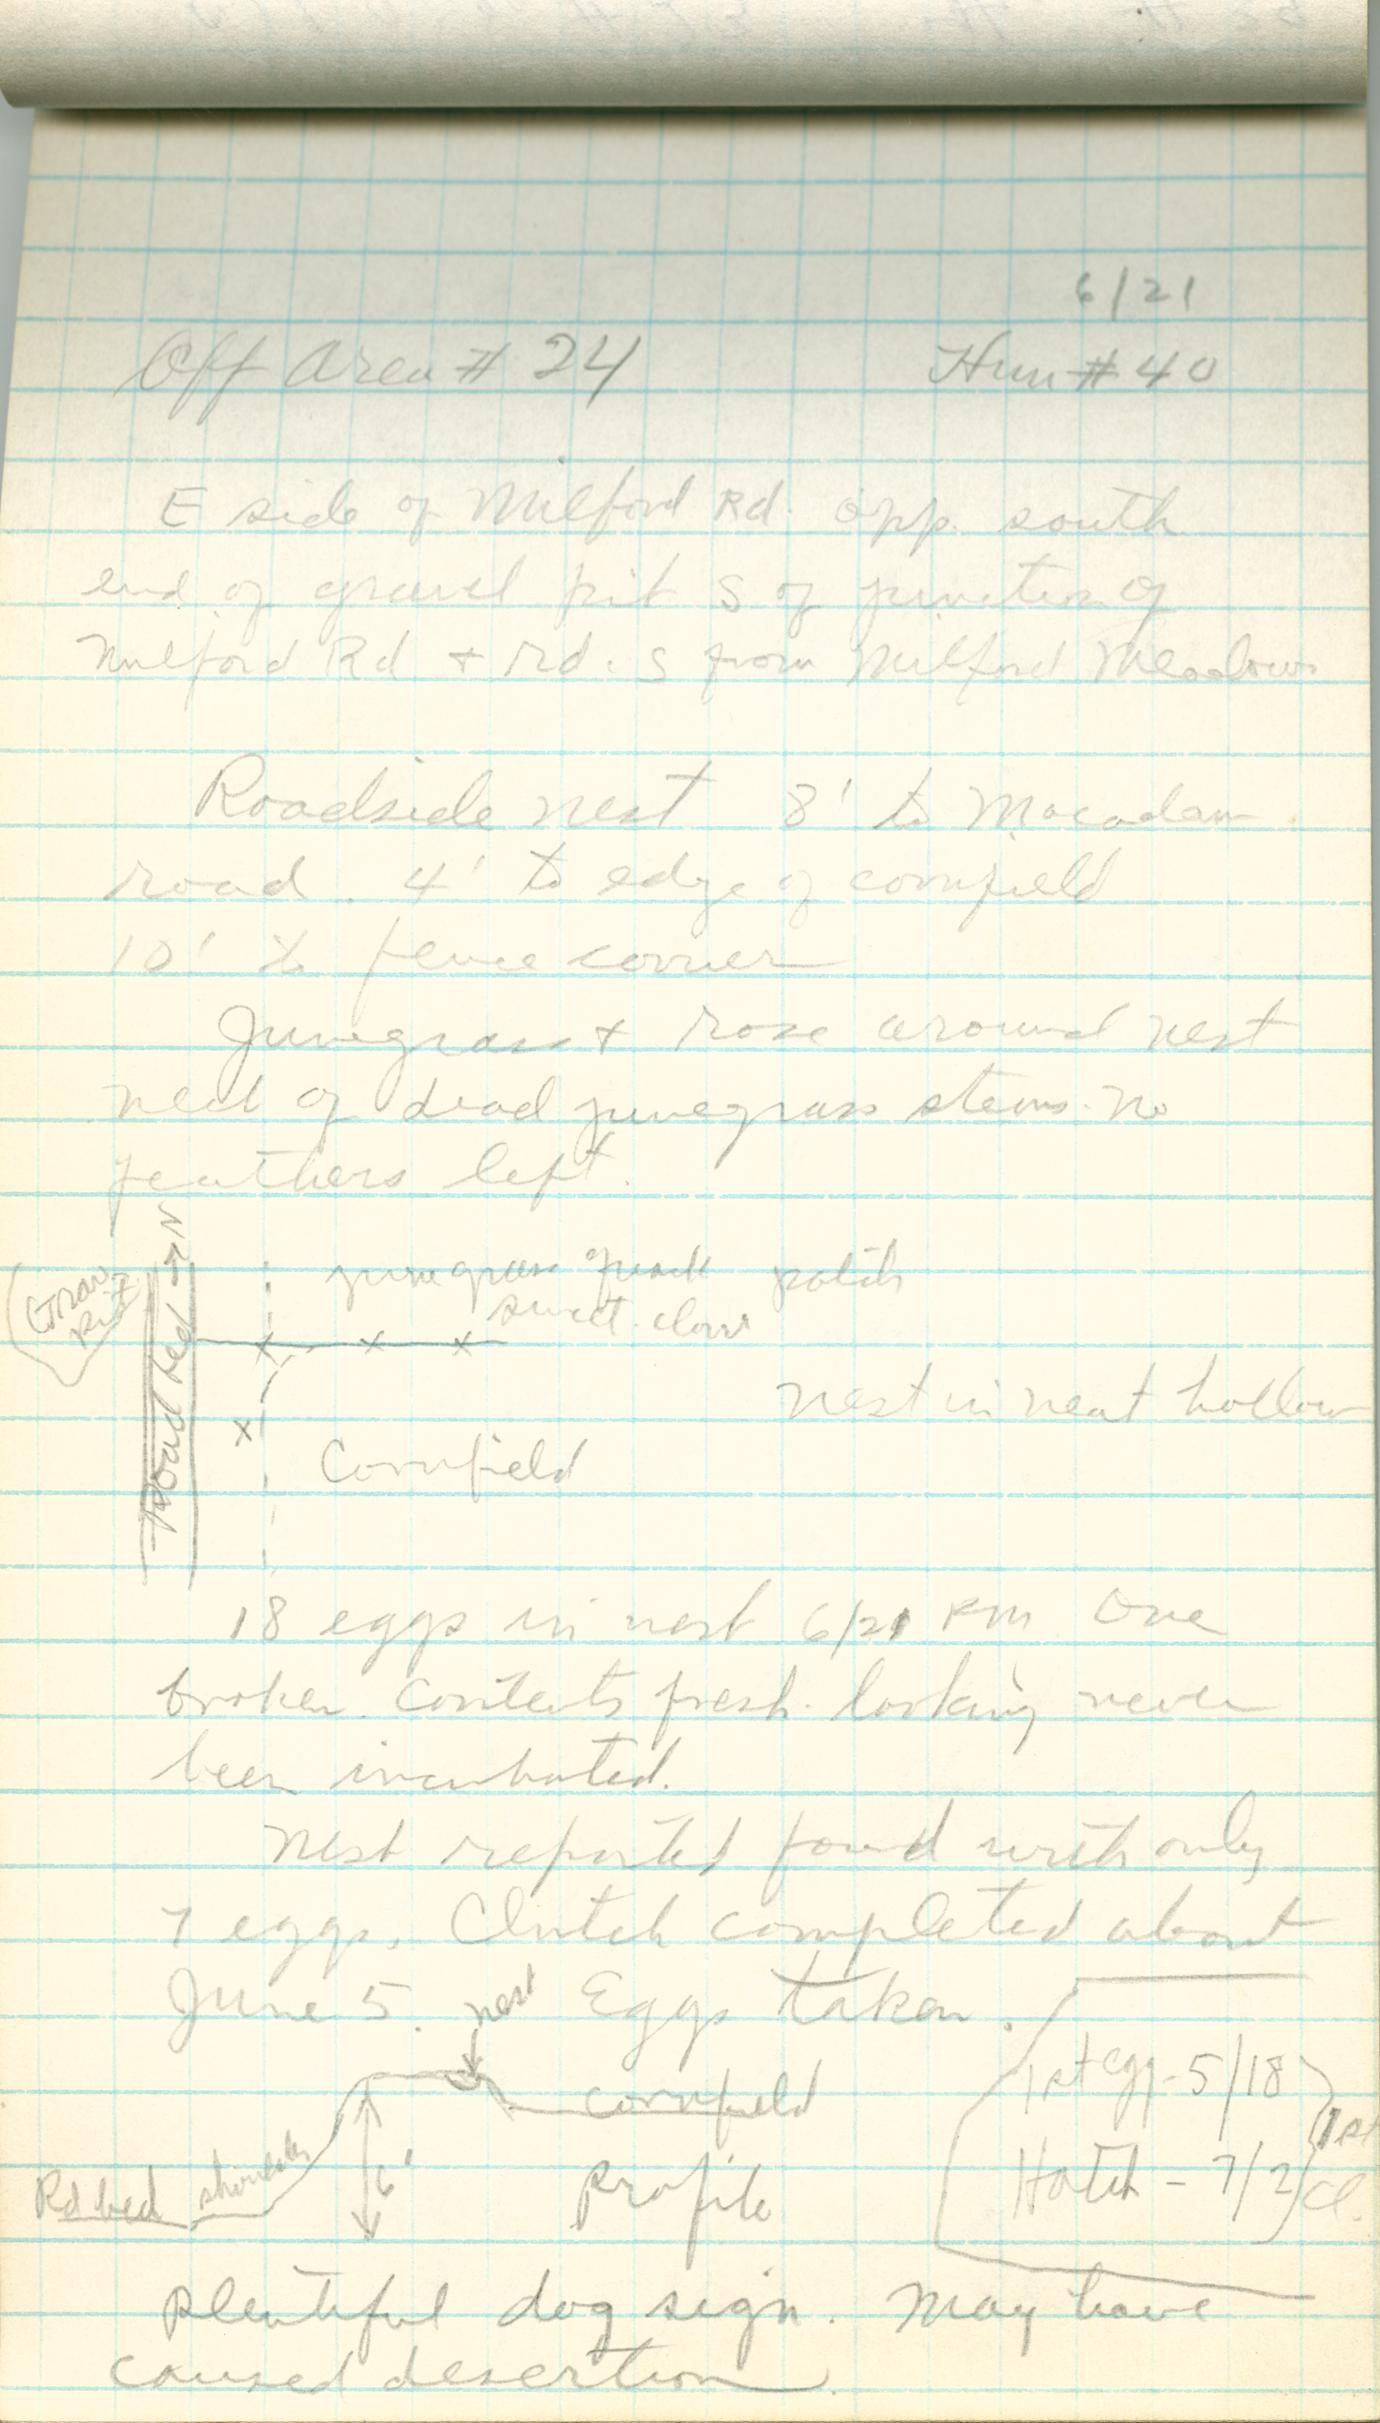 6/21
Off Area # 24 Hun # 40
E side of Milford Rd. opp. south
end of gravel pit S of junction of
Milford Rd + rd. S from Milford Meadows
Roadside nest 8' to Macadam
road. 4' to edge of cornfield
10' to fence corner
Junegrass + rose around nest
nest of dead junegrass stems. No
feathers left.
N
Grav
Pit
Road bed
junegrass quack patch
sweet clover
nest in neat hollow
Cornfield
18 eggs in nest 6/21 PM One
broken. Contents fresh-looking never
been incubated.
Nest reported found with only
7 eggs. Clutch completed about
June 5. Eggs taken.
nest
cornfield
1st egg - 5/18
1st
Hatch - 7/2
Cl.
Rd bed shoulder
6'
Profile
Plentiful dog sign. May have
caused desertion.